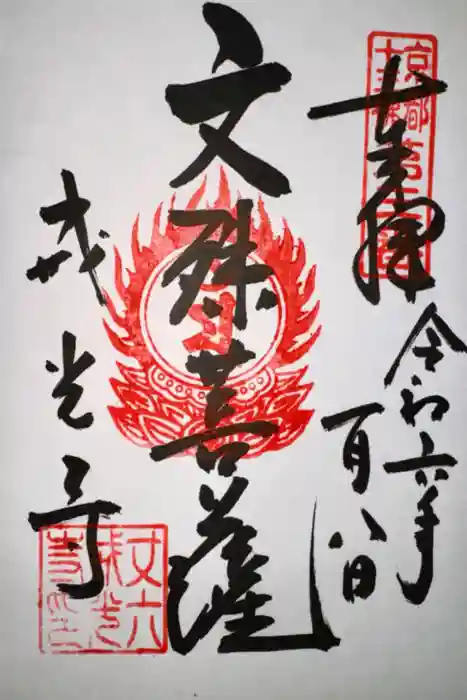 奉拝
令和六年
一月八日
文殊菩薩
戒光寺
京都
十三佛
丈六
戒光
寺印